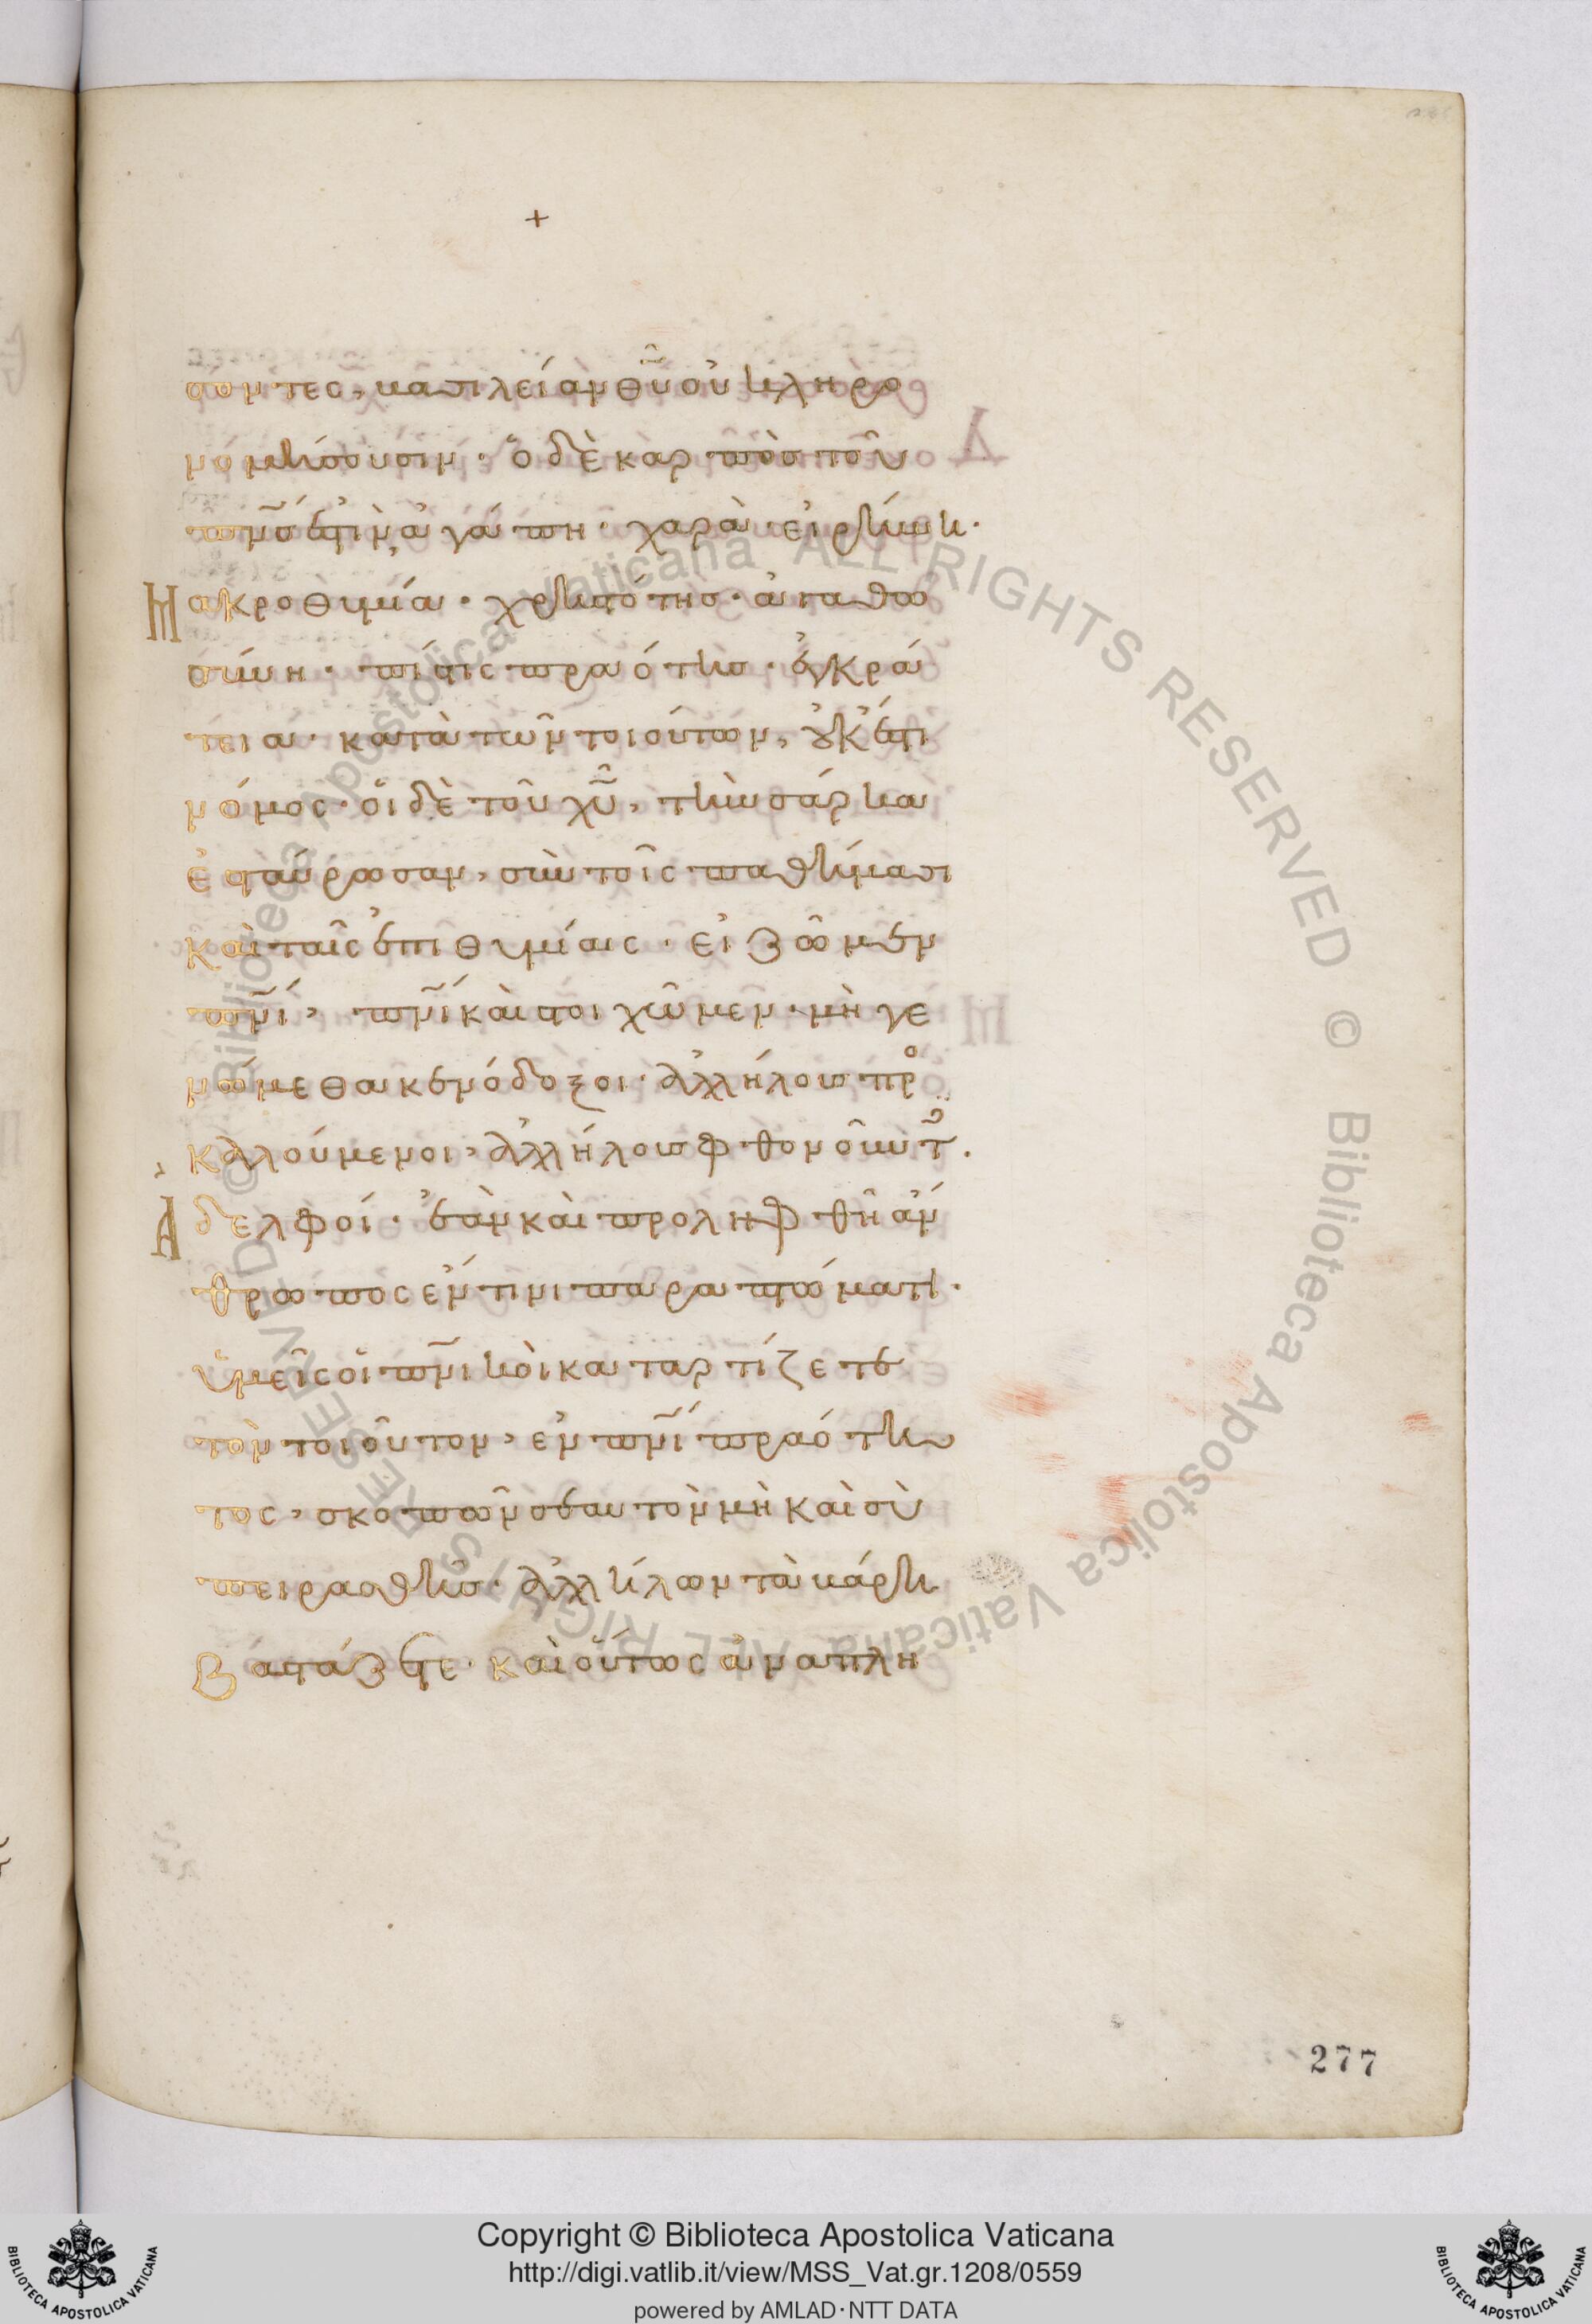 +
σοντες, βασιλείαν θ̅υ̅ οὐ κληρο
νομήσουσιν· ὁ δὲ καρπὸς τοῦ
π̅ν̅ς ἐστὶν, ἀγάπη· χαρὰ· εἰρήνη·
Μακροθυμία· χρηστότης· ἀγαθω
σύνη· πίστις πραότης· ἐγκρά
τεια· κατὰ τῶν τοιούτων, οὐκ ἔστι
νόμος· οἱ δὲ τοῦ χ̅υ̅, τὴν σάρκα
ἐσταύρωσαν, σὺν τοῖς παθήμασι
καὶ ταῖς ἐπιθυμίαις· εἰ ζῶμεν
π̅ν̅ι, π̅ν̅ι καὶ στοιχῶμεν· μὴ γε
νώμεθα κενόδοξοι· ἀλλήλους πρ̊
καλούμενοι, ἀλλήλοις φθονοῦντ̅·
Ἀδελφοί· ἐὰν καὶ προληφθῆ ἄν
θρωπος ἔν τινι παραπτώματι·
ὑμεῖς οἱ π̅ν̅ικοὶ καταρτίζετε
τὸν τοιοῦτον, ἐν π̅ν̅ι πραότη
τος, σκοπῶν σεαυτὸν μὴ καὶ σὺ
πειρασθῆς· ἀλλήλων τὰ βάρη
βαστάζετε· καὶ οὕτως ἀναπλη
277
Copyright © Biblioteca Apostolica Vaticana
http://digi.vatlib.it/view/MSS_Vat.gr.1208/0559
powered by AMLAD·NTT DATA
BIBLIOTECA APOSTOLICA VATICANA
BIBLIOTECA APOSTOLICA VATICANA
© Biblioteca Apostolica Vaticana ALL RIGHTS RESERVED © Biblioteca Apostolica Vaticana ALL RIGHTS RESERVED